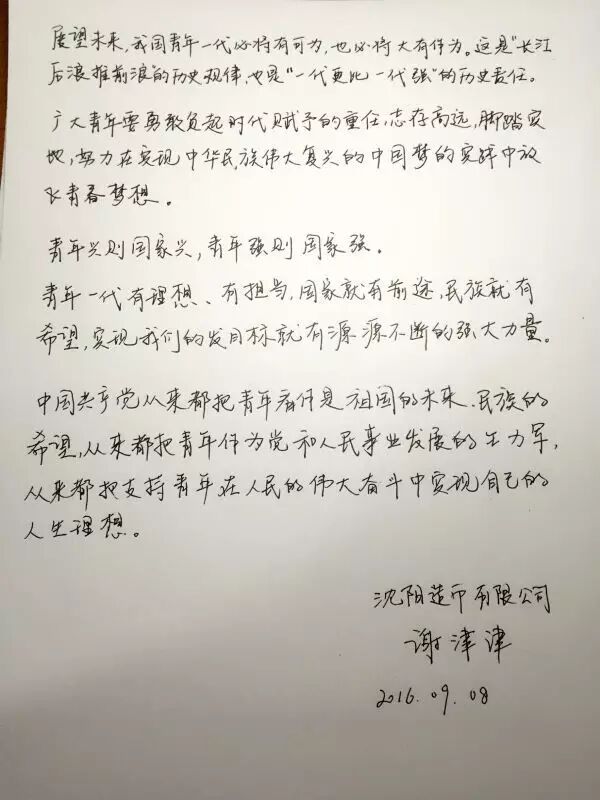 展望未来,我国青年一代必将有可为,也必将大有作为。这是"长江
后浪推前浪"的历史规律,也是"一代更比一代强"的历史责任。
广大青年要勇敢负起时代赋予的重任,志存高远,脚踏实
地,努力在实现中华民族伟大复兴的中国梦的实践中放
飞青春梦想。
青年兴则国家兴,青年强则国家强。
青年一代有理想、有担当,国家就有前途,民族就有
希望,实现我们的发目标就有源源不断的强大力量。
中国共产党从来都把青年看作是祖国的未来、民族的
希望,从来都把青年作为党和人民事业发展的生力军,
从来都把支持青年在人民的伟大奋斗中实现自己的
人生理想。
沈阳造币有限公司
谢津津
2016.09.08